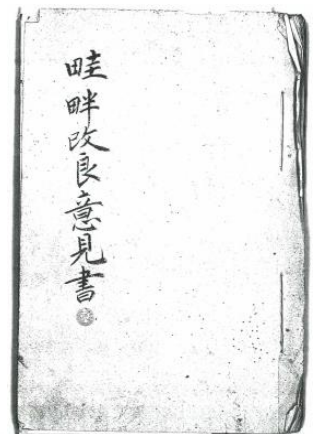 畦畔改良意見書